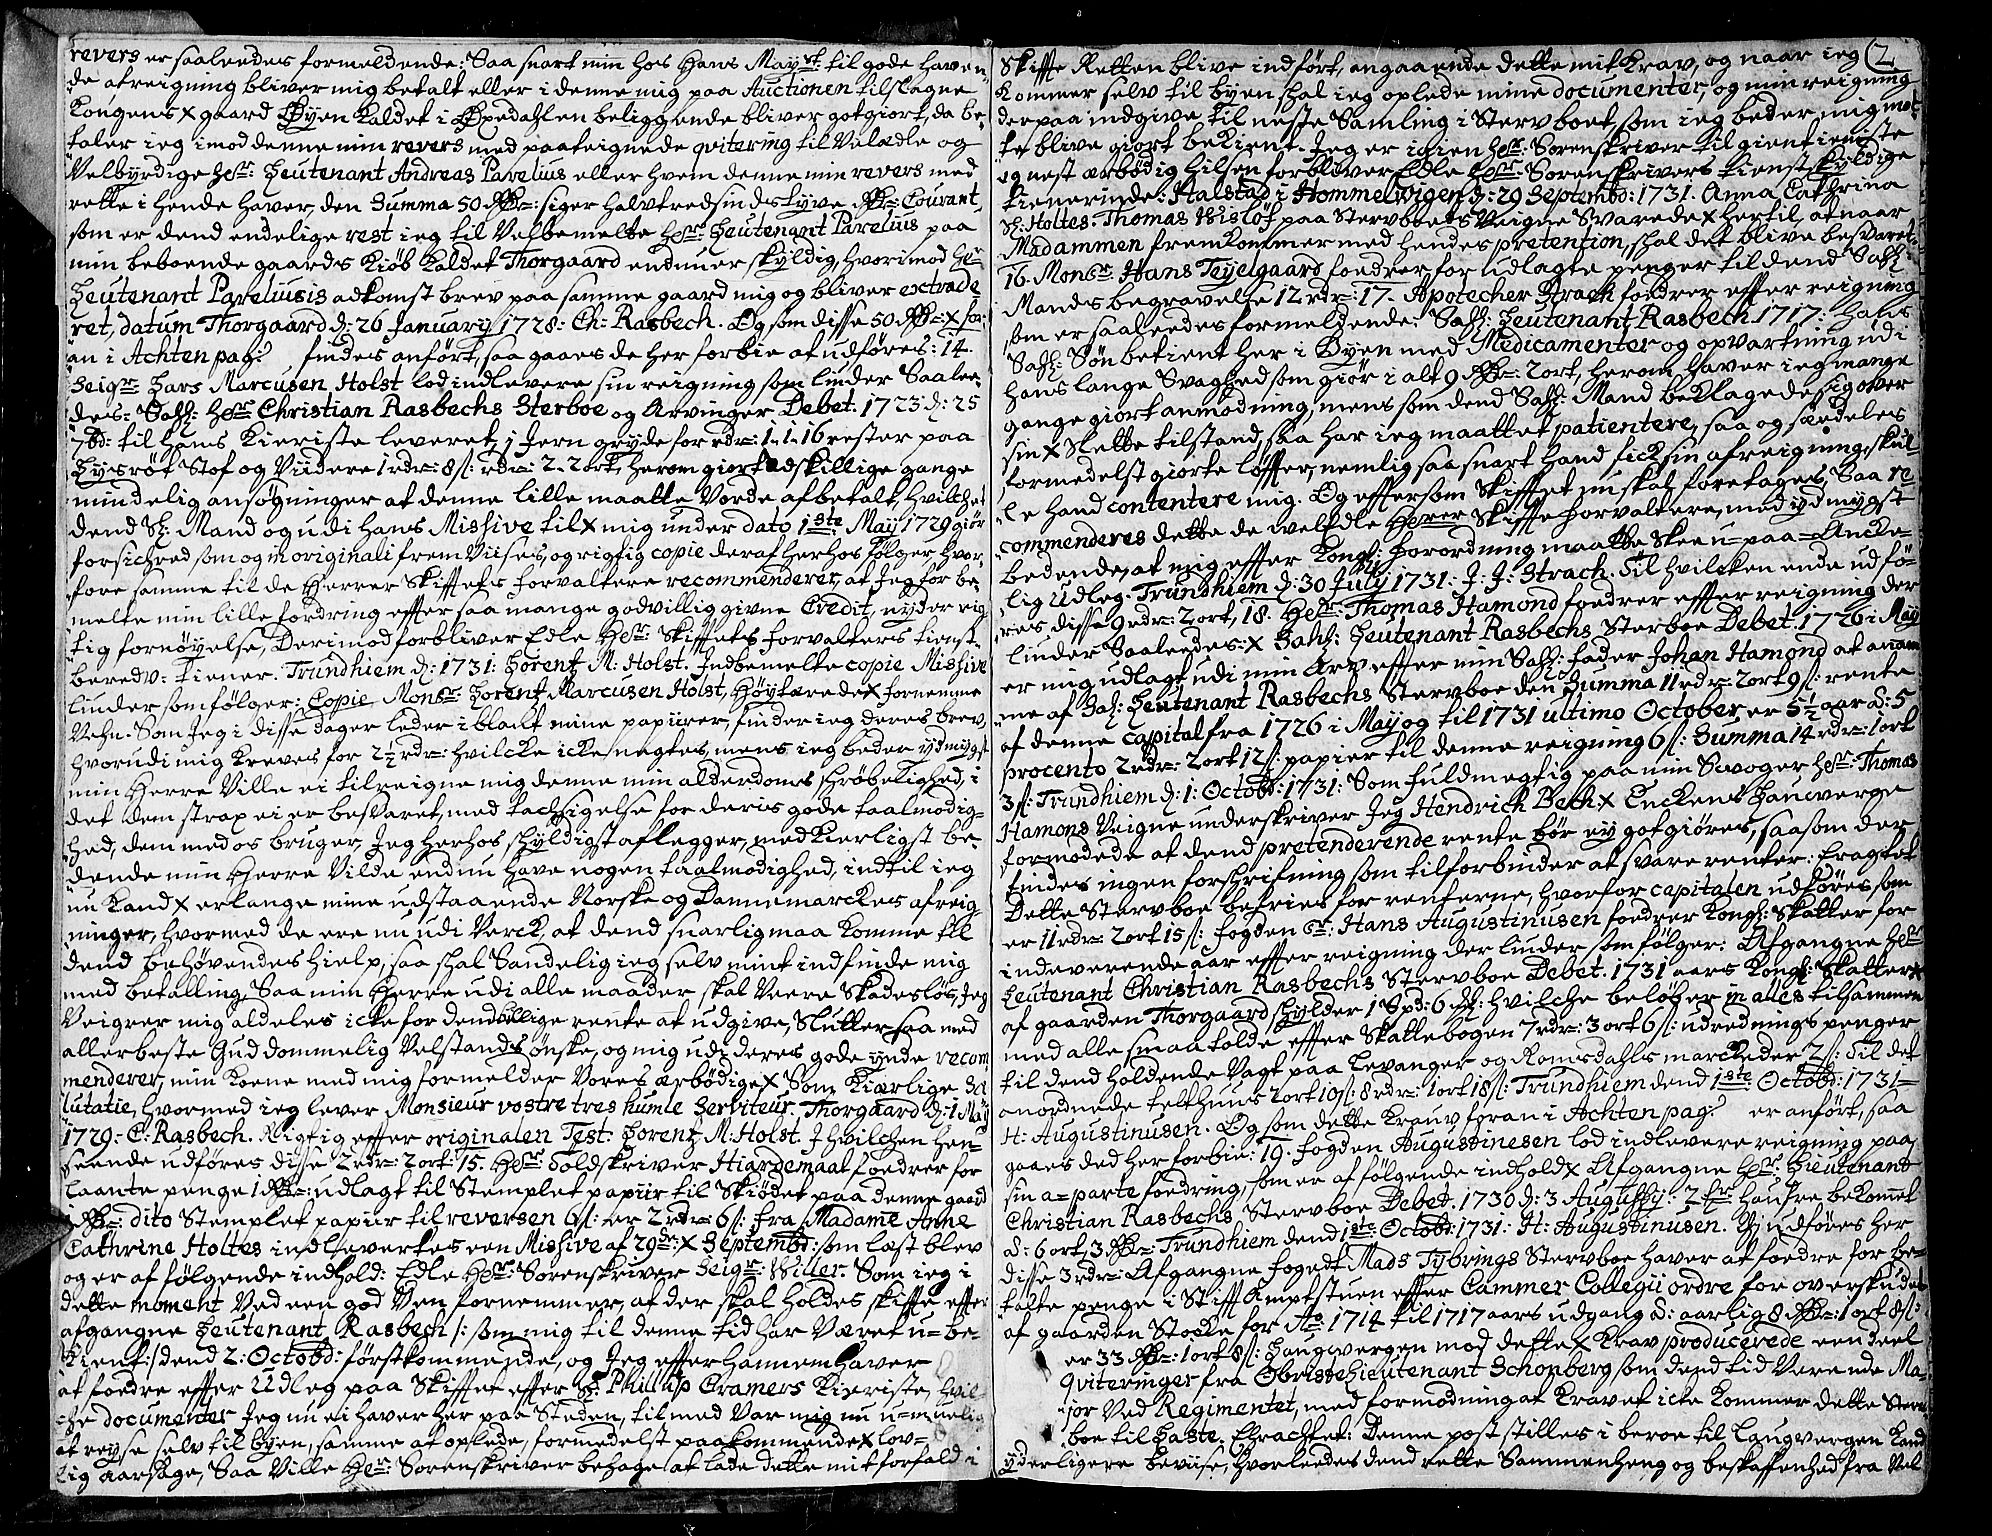 revers er saaleedes formeldende: Saa snart min hos Hans Mayst: til gode haven,,
de afreigning bliver mig betalt eller i denne mig paa Auctionen tilslagne
Kongens x gaard Øyen kaldet i Øxedahlen beliggende bliver gotgiort, da be,,
taler ieg imod denne min revers med paateignede qvitering til Velædle og
Velbyrdige Hr: Leutenant Andreas Parelius eller hvem denne min revers med
rette i hende haver, den Summa 50 Rdr: siger halvtredsindstyve Rdr: Courant,
som er dend endelige rest ieg til Velbemelte Hr: Leutenant Parelius paa
min beboende gaards Kiøb kaldet Thorgaard endnu er skyldig, hvorimod Hr
Leutenant Pareliusis adkomst brev paa samme gaard mig og bliver extrade
ret, datum Thorgaard d: 26 January 1728: Ch: Rasbech. Og som disse 50 Rdr: x for,,
an i Achten pag: findes anført, saa gaaes de her forbie at udføres: 14.
Seigr Lars Marcusen Holst lod indlevere sin reigning som linder Saalee,,
des: Sahl: Hr Christian Rasbechs Sterboe og Arvinger Debet. 1723 d: 25
7bd: til hans Kieriste leveret 1 Jern gryde for rdr: 1-1-16 rester paa
Lysrøt Stof og Viidere 1 rdr: 8 s: rdr: 2-2 ort, herom giort adskillige gange
mindelig ansøgninger at denne lille maatte Vorde afbetalt, hvilchet
dend Sl: Mand og udi hans Missive til x mig under dato 1ste May 1729 giør
forsichred som og in originali frem Viises, og rigtig copie deraf herhos følger, hvor,,
fore samme til de Herrer Skifftets forvaltere recommenderer, at Jeg for be,,
melte min lille fordring effter saa mange godvillig givne Credit, nyder rig,,
tig fornøyelse, Derimod forbliver Edle Hr: Skifftets forvalters tienst,,
beredv: tiener. Trundhiem d: 1731: Lorentz M: Holst. Indbemelte copie Missive
linder som følger: Copie Monsr Lorentz Marcusen Holst, Høytærede x fornemme
Vehn. Som Jeg i disse dager leder i blant mine papiirer, finder ieg deres brev,
hvorudi mig Kreves for 2½ rdr: hvilcke icke negtes, mens ieg beder ydmygst
min Herre Ville ei tilreigne mig denne min alderdoms schrøbelighed, i
det dem strax ei er besvaret, med tachsigelse for deris gode taalmodig,,
hed, dem med os bruger, Jeg herhos skyldigst aflegger, med Kierligst be,,
dende min Herre Vilde endnu have nogen taalmodighed, indtil ieg
nu Kand x erlange mine udstaaende Norske og Dannemarckes afreig,,
ninger, hvormed de ere nu udi Verck, at dend snarlig maa Komme til
dend behøvendes hielp, saa skal Sandelig ieg selv mint indfinde mig
med betalling, Saa min Herre udi alle maader skal Være Skadesløs, Jeg
Veigrer mig aldeles icke for dend billige rente at udgive, Slutter saa med
allerbeste Gud dommelig Velstands ønske, og mig udi deres gode ynde recom
menderer, min Kone med mig formelder Vores ærbødige x Som Kiærlige Sa
lutatie, hvormed ieg lever Monsieur vostre tres humle Serviteur. Thorgaard d: 1 May
1729: C: Rasbech. Rigtig effter originalen Test: Lorentz M: Holst. I hvilchen hen,,
seende udføres disse 2 rdr: 2 ort: 15. Hr Toldskriver Hiardemaal foedrer for
laante penge 1 Rdr: udlagt til Stemplet papiir til Skiødet paa denne gaard
1 Rdr: dito Stemplet papiir til reversen 6 s: er 2 rdr: 6 s: fra Madame Anne
Cathrine Holtes indlevertes een Missive af 29de: x Septembr: som læst blev
og er af følgende indhold: Edle Hr: Sorenskriver Seigr: Willer. Som ieg i
dette moment Ved een god Ven fornemmer, at der skal holdes skifte effter
afgangne Leutenant Rasbech /: som mig til denne tid har Været u=be,,
kient :/ dend 2: Octobr: førstkommende, og Jeg effter hannem haver
at foedre effter Udleg paa Skifftet effter Sl: Phillip Cramers Kieriste, hvil,,
che documenter Jeg nu ei haver her paa Steden, til med Var mig nu u=muelig
at reyse selv til byen, samme at oplede, formedelst paakommende x lov=
lig aarsage, Saa Ville Hr: Sorenskriver behage at lade dette mit forfald i
2
Skiffte Retten blive indført, angaaende dette mit Krav, og naar ieg
kommer selv til byen skal ieg oplede mine documenter, og min reigning
derpaa indgive til neste Samling i Stervboet, som ieg beder, mig mot
te blive giort bekient. Jeg er igien Hr: Sorenskriver til gientieniste
og nest ærbødig hilsen forbliver Edle Hr: Sorenskrivers tienstskyldige
tienerinde: Halstad i Hommelwigen d: 29 Septembr: 1731. Anna Cathrina
Sl: Holtes. Thomas Wisløf paa Stervboets Veigne Svarede x hertil at naar
Madammen fremkommer med hendes pretention, skal det blive besvaret.
16. Monsr: Hans Teyelgaard foedrer for udlagte penger til dend Sahl:
Mands begravelse 12 rdr: 17. Apotecher Strach foedrer effter reigning
som er saaleedes formeldende: Sahl: Leutenant Rasbech 1717: hans
Sahl: Søn betient her i Byen med Medicamenter og opvartning udi
hans lange Svaghed som giør i alt 9 Rdr: 2 ort, herom haver ieg mange
gange giort anmodning, mens som dend Sahl: Mand beklagede sig over
sin x Slette tilstand, saa har ieg maattet patientere, saa og særdeles
formedelst giorte løffter, nemlig saa snart hand fick sin afreigning, skul
le hand contentere mig. Og effterson Skifftet nu skal foretages, Saa re
commenderes dette de welEdle Herrer Skiffte Forvaltere, med ydmygst
bedende, at mig effter Kongl: Forordning maatte skee u=paa=Ancke=
lig Udleg. Trundhiem d: 30 July 1731. J: J: Strach. Til hvilcken ende udfø=
res disse 9 rdr: 2 ort, 18. Hr: Thomas Hamond foedrer effter reigning der
linder Saaledes: x Sahl: Leutenant Rasbechs Sterboe Debet. 1726 i May
er mig udlagt udi min Arv effter min Sahl: fader Johan Hamond at anam
me af Sahl: Leutenant Rasbechs Stervboe den Summa 11 rdr: 2 ort 9 s: rente
af denne capital fra 1726 i May og til 1731 ultimo October, er 5½ aar á: 5
procento 2 rdr: 2 ort 12 s: papier til denne reigning 6 s: Summa 14 rdr: 1 ort
3 s: Trundhiem d: 1: Octobr: 1731: Som fuldmegtig paa min Svoger Hr: Thomas
Hamons Veigne underskriver Jeg Hendrich Bech x Enckens Laugverge
formodede at dend pretenderende rente bør ey gotgiøres, saasom der
findes ingen forschrifning som tilforbinder at svare renter: Eragtet
Dette Stervboe befries for renterne, hvorfor capitalen udføres som
er 11 rdr: 2 ort 15 s: Fogden Sr: Hans Augustinusen foedrer Kongl: Skatter for
indeverende aar effter reigning der linder som følger: Afgangne Hr
Leutenant Christian Rasbechs Stervboe Debet. 1731 aars Kongl: Skatter x
af gaarden Thorgaard skylder 1 Spd: 6 : hvilche beløber in alles tilsammen
med alle smaa tolde effter Skattebogen 7 rdr: 3 ort 6 s: udrednings penger
til dend holdende Vagt paa Levanger og Romsdahls marckeder 2 s: Til det
anordnede telthuus 2 ort 10 s: 8 rdr: 1 ort 18 s: Trundhiem dend 1ste Octobr: 1731=
H: Augustinusen. Og som dette Krauv foran i Achten pag: er anført, saa
gaaes ded her forbie: 19. Fogden Augustinesen lod indlevere reigning paa
sin a=parte foedring, som er af følgende indhold x Afgangne Hr: Lieutenant
Christian Rasbechs Stervboe Debet. 1730 d: 3 Augusty: 2 tr havre bekomet
á: 6 ort, 3 Rdr: Trundhiem dend 1ste Octobr: 1731: H: Augustinusen. Vj udføres her
disse 3 rdr: Afgangne fogedt Mads Tybrings Stervboe haver at foedre for be=
talte penge i Stifft Amptstuen effter Cammer Collegii ordre for overskudet
af gaarden Stocke for Ao 1714 til 1717 aars udgang á: aarlig 8 Rdr: 1 ort 8 s:
er 33 Rdr: 1 ort 8 s: Laugwergen mod dette x Krav producerede een deel
Qviteringer fra Obristelieutenant Schønberg som dend tid Verende Ma=
jor Ved Regimentet, med formodning at Kravet icke Kommer dette Sterv
boe til Laste. Ehrachtet: Denne post stilles i beroe til Laugvergen Kand
yderligere beviise, hvorleedes dend rette Sammenheng og beskaffenhed fra Vel